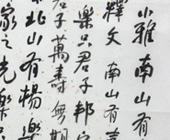 小雅南山有
釋文南山有臺
樂只君子邦家
君子萬壽無期
北山有楊樂
家之光樂